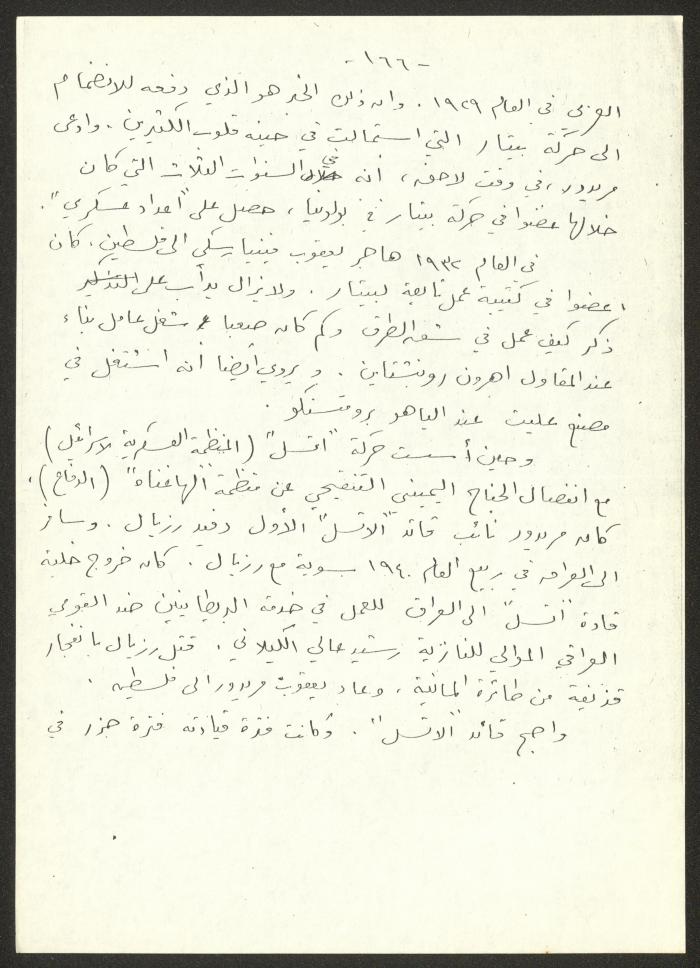 - ١٦٦ -
العربي في العام ١٩٢٩ . وان ذلك الخبر هو الذي دفعه للانضمام
الى حركة بيتار التي استمالت في حينه قلوب الكثيرين . وادعى
مريدور ، في وقت لاحق ، أنه في السنوات الثلاث التي كان
خلالها عضوا في حركة بيتار في بولونيا ، حصل على "اعداد عسكري" .
في العام ١٩٣٢ هاجر يعقوب فينيارسكي الى فلسطين . كان
عضوا في كتيبة عمل تابعة لبيتار . ولا يزال يدأب على
ذكر كيف عمل في شق الطرق وكم كان صعبا شغل عامل بناء
عند المقاول اهرون روبنشتاين . ويروي أيضا أنه اشتغل في
مصنع عليت عند الياهو
وحين أسست حركة "اتسل" (المنظمة العسكرية الاسرائيل)
مع انفصال الجناح اليميني التنقيحي عن منظمة "الهاغناه" (الدفاع) ،
كان مريدور نائب قائد "الاتسل" الأول دفيد رزيال . وسافر
الى العراق في ربيع العام ١٩٤٠ سوية مع رزيال . كان خروج خلية
قادة "اتسل" الى العراق للعمل في خدمة البريطانيين ضد القومي
العراقي الموالي للنازية رشيد عالي الكيلاني . قتل رزيال بانفجار
قذيفة من طائرة المانية ، وعاد يعقوب مريدور الى فلسطين .
واصبح قائد "الاتسل" . وكانت فترة قيادته فترة جزر في